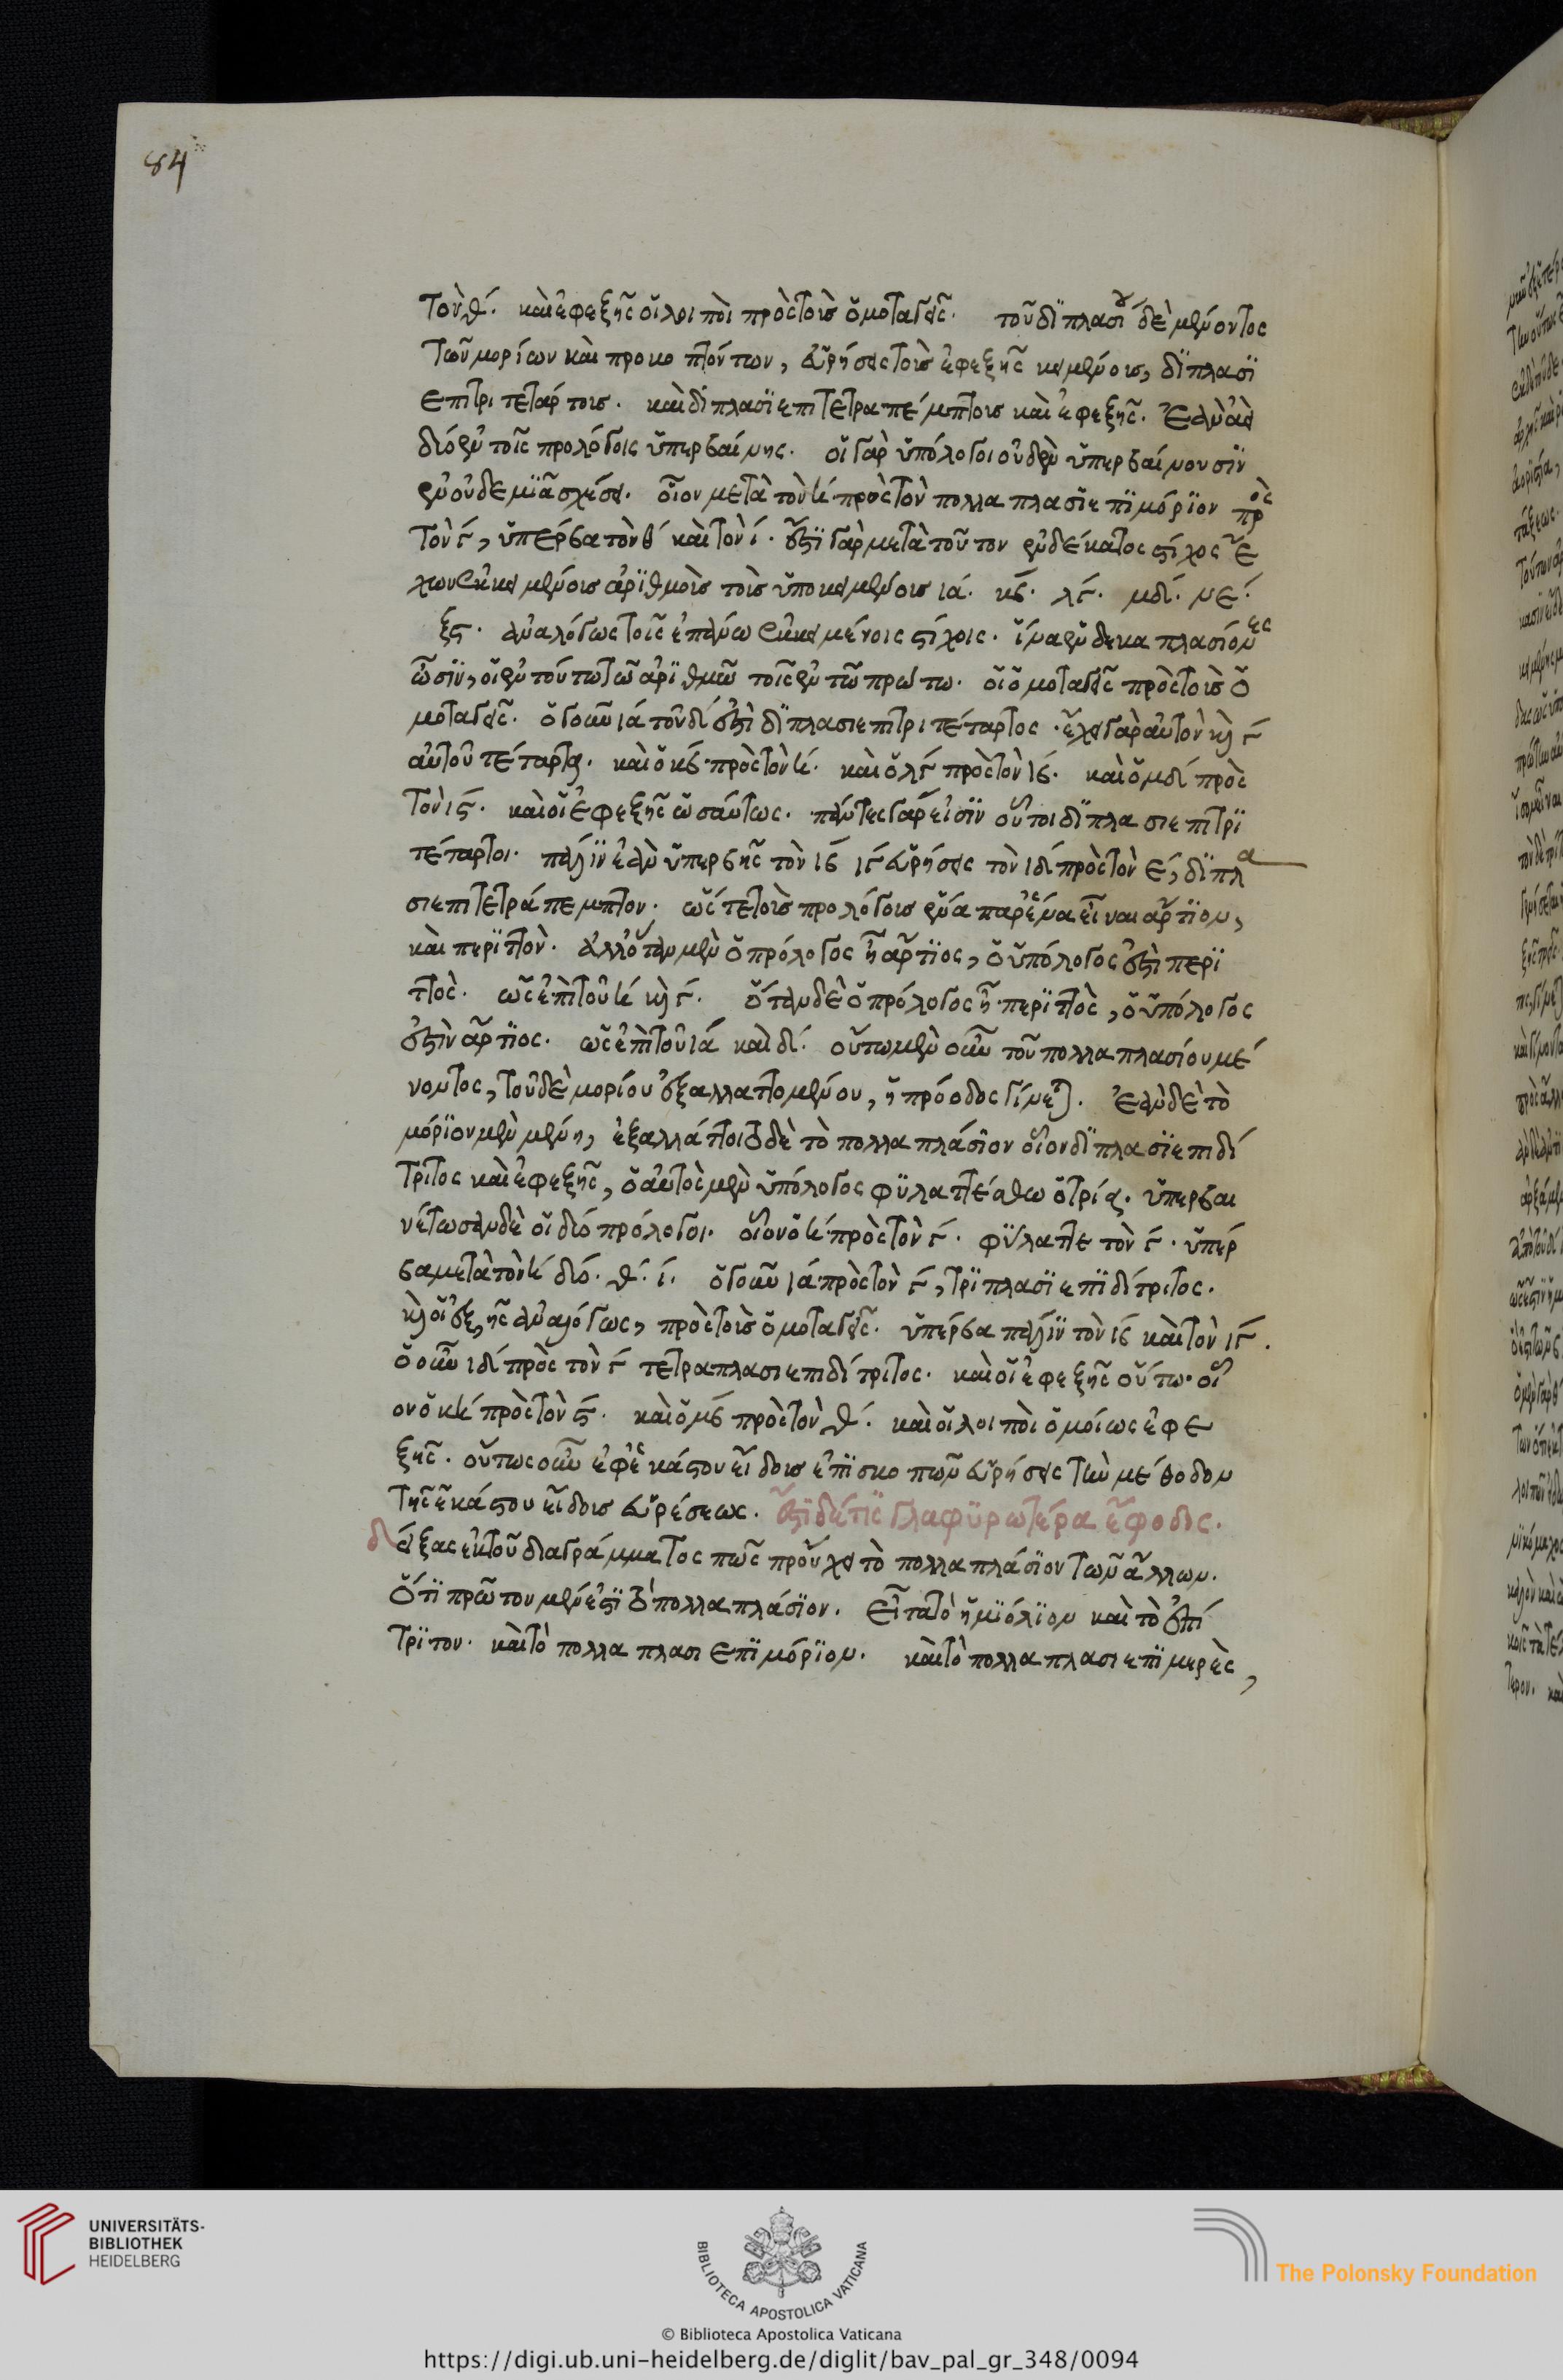 84
τὸν θ´. καὶ ἐφεξῆς οἱ λοιποὶ πρὸς τοὺς ὁμοταγεῖς. τοῦ διπλασίου δὲ μένοντος
τῶν μορίων καὶ προκοπτόντων, εὑρήσεις τοὺς ἐφεξῆς κειμένους, διπλασι
επιτριτετάρτους. καὶ διπλασιεπιτετραπέμπτους καὶ ἐφεξῆς. ἐὰν ἀεὶ
δύο ἐν τοῖς προλόγοις ὑπερβαίνης. οἱ γὰρ ὑπόλογοι οὐδὲν ὑπερβαίνουσιν
ἐν οὐδεμιᾶ σχέσει. οἷον μετὰ τὸν η´ πρὸς τὸν πολλαπλασιεπιμόριον πρὸς
τὸν γ´, ὑπέρβα τὸν θ´ καὶ τὸν ι´. ἔστι γὰρ μετὰ τοῦτον ἑνδέκατος στίχος ἔ
χων ἐκκειμένους ἀριθμοὺς τοὺς ὑποκειμένους ια´. κβ´. λγ´. μδ´. νε´.
ξς´. ἀναλόγως τοῖς ἐπάνω ἐκκειμένοις στίχοις. ἵνα ἑνδεκαπλασίονες
ὦσιν, οἱ ἐν τούτω τῶ ἀριθμῶ τοῖς ἐν τῶ πρώτω. οἱ ὁμοταγεῖς πρὸς τοὺς ὁ
μοταγεῖς. ὁ γοῦν ια´ τοῦ δ´ ἐστὶ διπλασιεπιτριτέταρτος. ἔχει γὰρ αὐτὸν καὶ γ´
αὐτοῦ τέταρτα. καὶ ὁ κβ´ πρὸς τὸν η´. καὶ ὁ λγ´ πρὸς τὸν ιβ´. καὶ ὁ μδ´ πρὸς
τὸν ις´. καὶ οἱ ἐφεξῆς ὡσαύτως. πάντες γάρ εἰσιν οὗτοι διπλασιεπιτρι
τέταρτοι. πάλιν ἐὰν ὑπερβῆς τὸν ιβ´ ιγ´ εὑρήσεις τὸν ιδ´ πρὸς τὸν ε´, διπλα
σιεπιτετράπεμπτον. ὥστε τοὺς προλόγους ἕνα παρ' ἕνα εἶναι ἄρτιον,
καὶ περιττόν. ἀλλ' ὅταν μὲν ὁ πρόλογος ἦ ἄρτιος, ὁ ὑπόλογος ἐστὶ περι
ττός. ὡς ἐπὶ τοῦ η´ καὶ γ´. ὅταν δὲ ὁ πρόλογος ἦ περιττὸς, ὁ ὑπόλογος
ἐστὶν ἄρτιος. ὡς ἐπὶ τοῦ ια´ καὶ δ´. οὕτω μὲν οὖν τοῦ πολλαπλασίου μέ
νοντος, τοῦ δὲ μορίου ἐξαλλαττομένου, ἡ πρόοδος γίνεται. ἐὰν δὲ τὸ
μόριον μὲν μένη, ἐξαλλάττοιτο δὲ τὸ πολλαπλάσιον οἷον διπλασιεπιδί
τριτος καὶ ἐφεξῆς, ὁ αὐτὸς μὲν ὑπόλογος φυλαττέσθω ὁ τρία. ὑπερβαι
νέτωσαν δὲ οἱ δύο πρόλογοι. οἷον ὁ η´ πρὸς τὸν γ´. φύλαττε τὸν γ´. ὑπέρ
βα μετὰ τὸν η´ δύο. θ´. ι´. ὁ γοῦν ια´ πρὸς τὸν γ´, τριπλασιεπιδίτριτος.
καὶ οἱ ἑξῆς ἀναλόγως, πρὸς τοὺς ὁμοταγεῖς. ὑπέρβα πάλιν τὸν ιβ´ καὶ τὸν ιγ´.
ὁ οὖν ιδ´ πρὸς τὸν γ´ τετραπλασιεπιδίτριτος. καὶ οἱ ἐφεξῆς οὕτω. οἷ
ον ὁ κη´ πρὸς τὸν ς´. καὶ ὁ μβ´ πρὸς τὸν θ´. καὶ οἱ λοιποὶ ὁμοίως ἐφε
ξῆς. οὕτως οὖν ἐφ' ἑκάστου εἴδους ἐπισκοπῶν εὑρήσεις τὴν μέθοδον
τῆς ἑκάστου εἴδους εὑρέσεως. ἔστι δέ τις γλαφυρωτέρα ἔφοδος.
δείξας ἐκ τοῦ διαγράμματος πῶς προὔχει τὸ πολλαπλάσιον τῶν ἄλλων.
ὅτι πρῶτον μέν ἐστι τὸ πολλαπλάσιον. εἶτα τὸ ἡμιόλιον καὶ τὸ ἐπί
τριτον. καὶ τὸ πολλαπλασιεπιμόριον. καὶ τὸ πολλαπλασιεπιμερὲς,
UNIVERSITÄTS-
BIBLIOTHEK
HEIDELBERG
BIBLIOTECA APOSTOLICA VATICANA
The Polonsky Foundation
© Biblioteca Apostolica Vaticana
https://digi.ub.uni-heidelberg.de/diglit/bav_pal_gr_348/0094